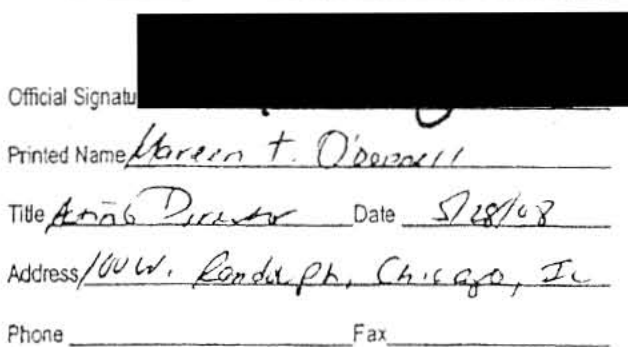 Official Signatu
Printed Name Mareen T. O'Donnell
Title Acting Director Date 5/28/08
Address 100 W. Randolph, Chicago, IL
Phone Fax